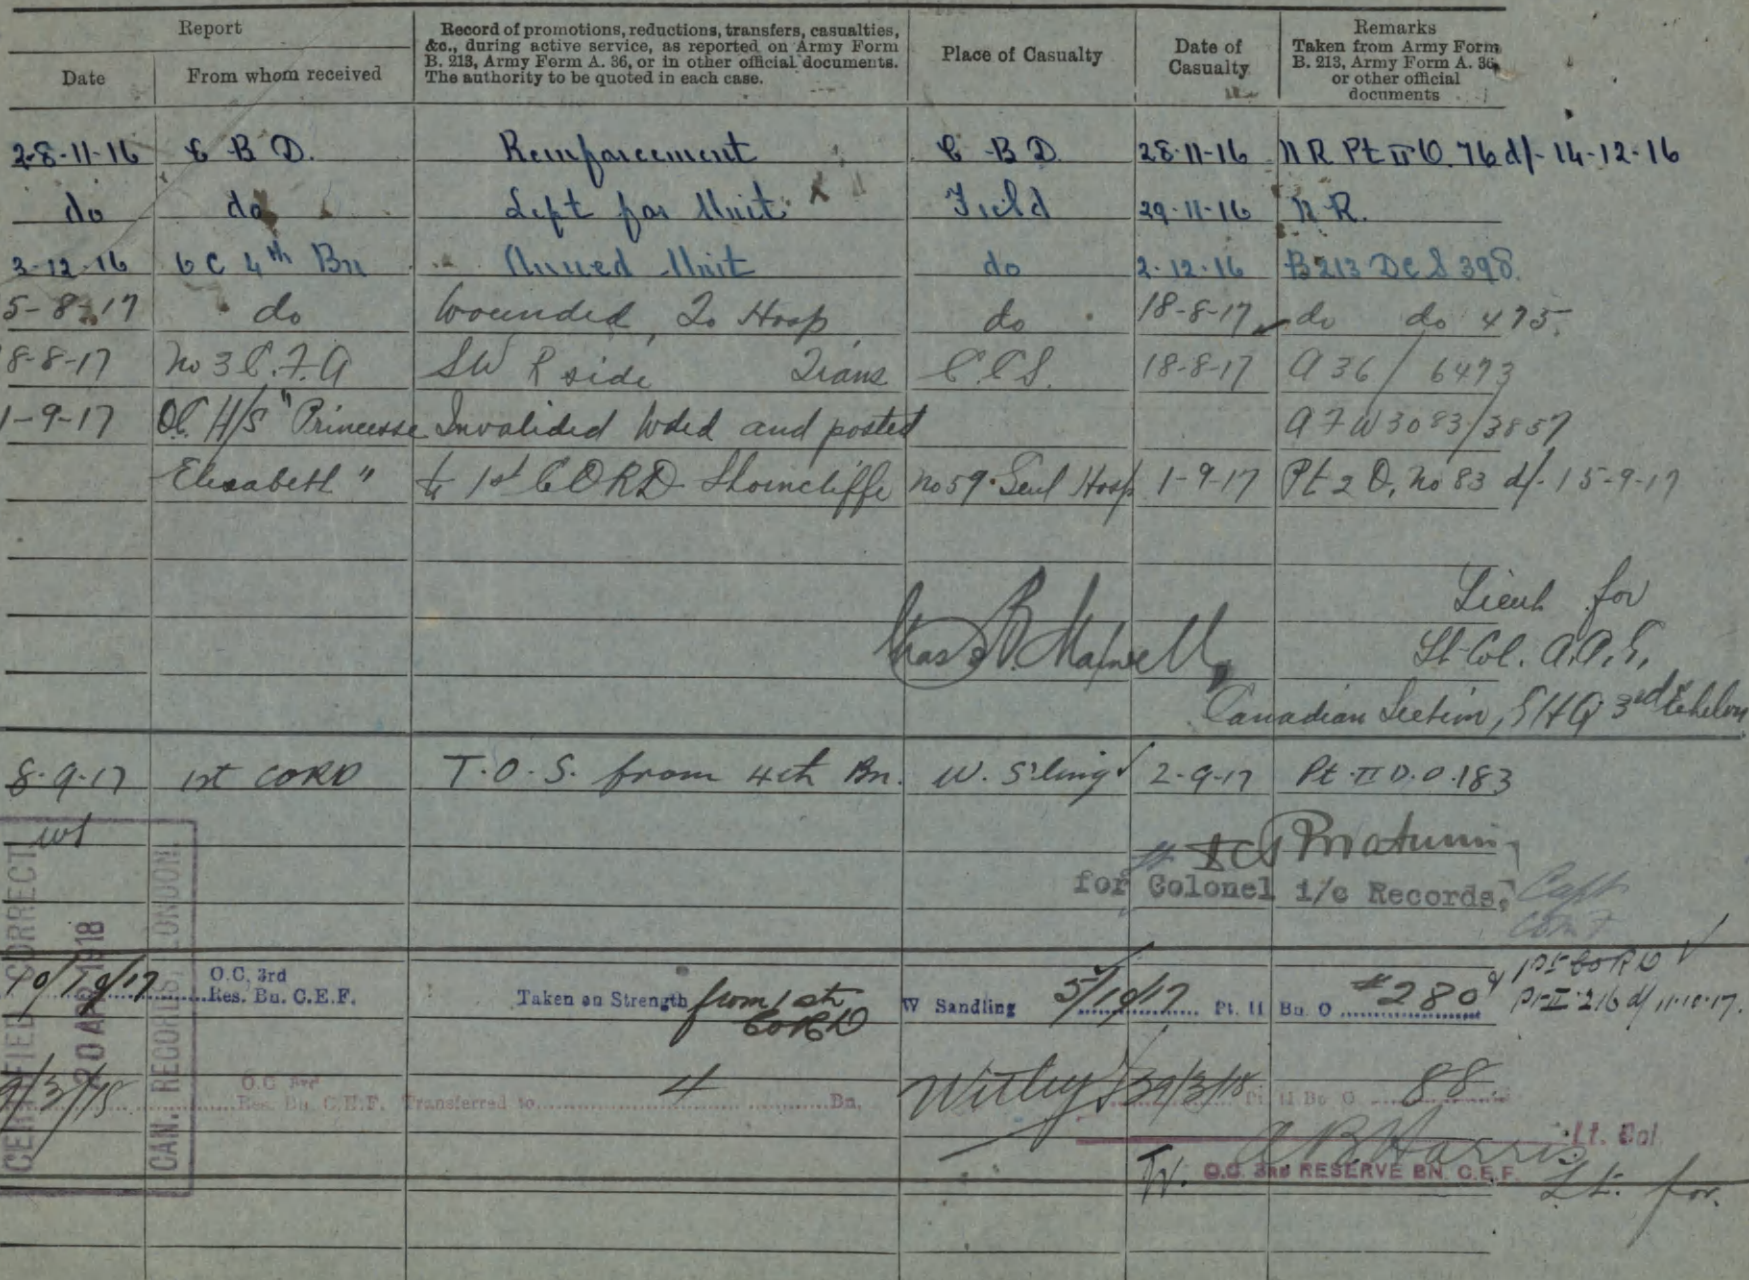 Report
Record of promotions, reductions, transfers, casualties,
&c., during active service, as reported on Army Form
B. 213, Army Form A. 36, or in other official documents.
The authority to be quoted in each case.
Place of Casualty
Date of
Casualty
Remarks
Taken from Army Form
B. 213, Army Form A. 36,
or other official
documents
Date
From whom received
28-11-16 C B D. Reinforcement C B D 28-11-16 N R Pt II O. 76 d/- 14-12-16
do do Left for Unit Field 29-11-16 N R.
3-12-16 O C 4th Bn Arrived Unit do 2-12-16 B213 DCS 398.
5-8-17 do Wounded, To Hosp do 18-8-17 do do 475.
8-8-17 No 3 C.F.A SW R side Trans C.C.S. 18-8-17 A 36/6473
1-9-17 OC. H/S "Princesse Invalided Wded and posted A F W 3083/3857
Elisabeth" to 1st CORD Shorncliffe No 59 Genl Hosp 1-9-17 Pt 2 O, No 83 d/- 15-9-17
Chas B. Maxwell
Lieut for
Lt-Col. A.A.G.
Canadian Section, GHQ 3rd Echelon
8-9-17 1st CORD T.O.S. from 4th Bn. W. S'ling 2-9-17 Pt. II D.O. 183
for Colonel i/c Records.
Capt
CERTIFIED CORRECT
20 APR 1918
CAN. RECORDS, LONDON.
10/10/17 O.C. 3rd
Res. Bn. C.E.F. Taken on Strength from 1st
CORD W Sandling 5/10/17 Pt. II Bn. O #280 & 1st CORD
Pt II 216 d/ 11-10-17.
O.C. 3rd
Res. Bn. C.E.F. Transferred to 4 Bn. Witley Pt. II Bn. O 88
A B Harris Lt. Col.
O.C. 3RD RESERVE BN. C.E.F.
Lt. for.